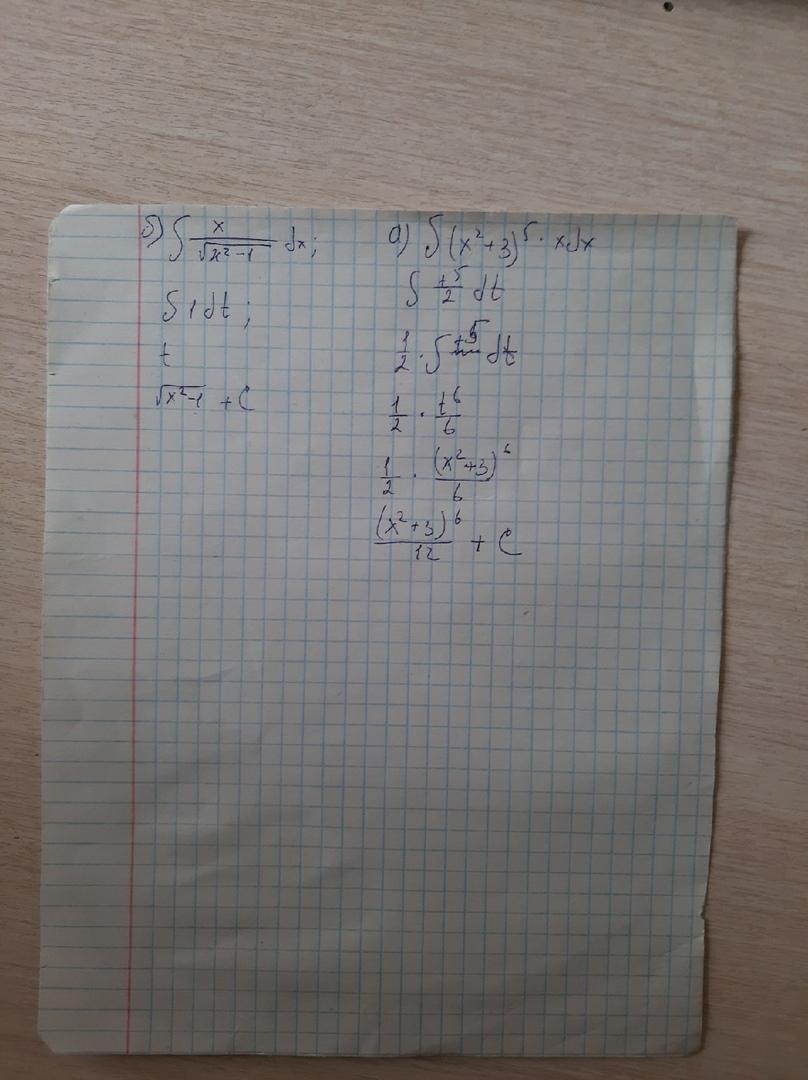 б) ∫ x/√(x²-1) dx;
∫ 1 dt;
t
√(x²-1) + C
а) ∫ (x²+3)⁵ · xdx
∫ t⁵/2 dt
1/2 · ∫ t⁵ dt
1/2 · t⁶/6
1/2 · (x²+3)⁶/6
(x²+3)⁶/12 + C